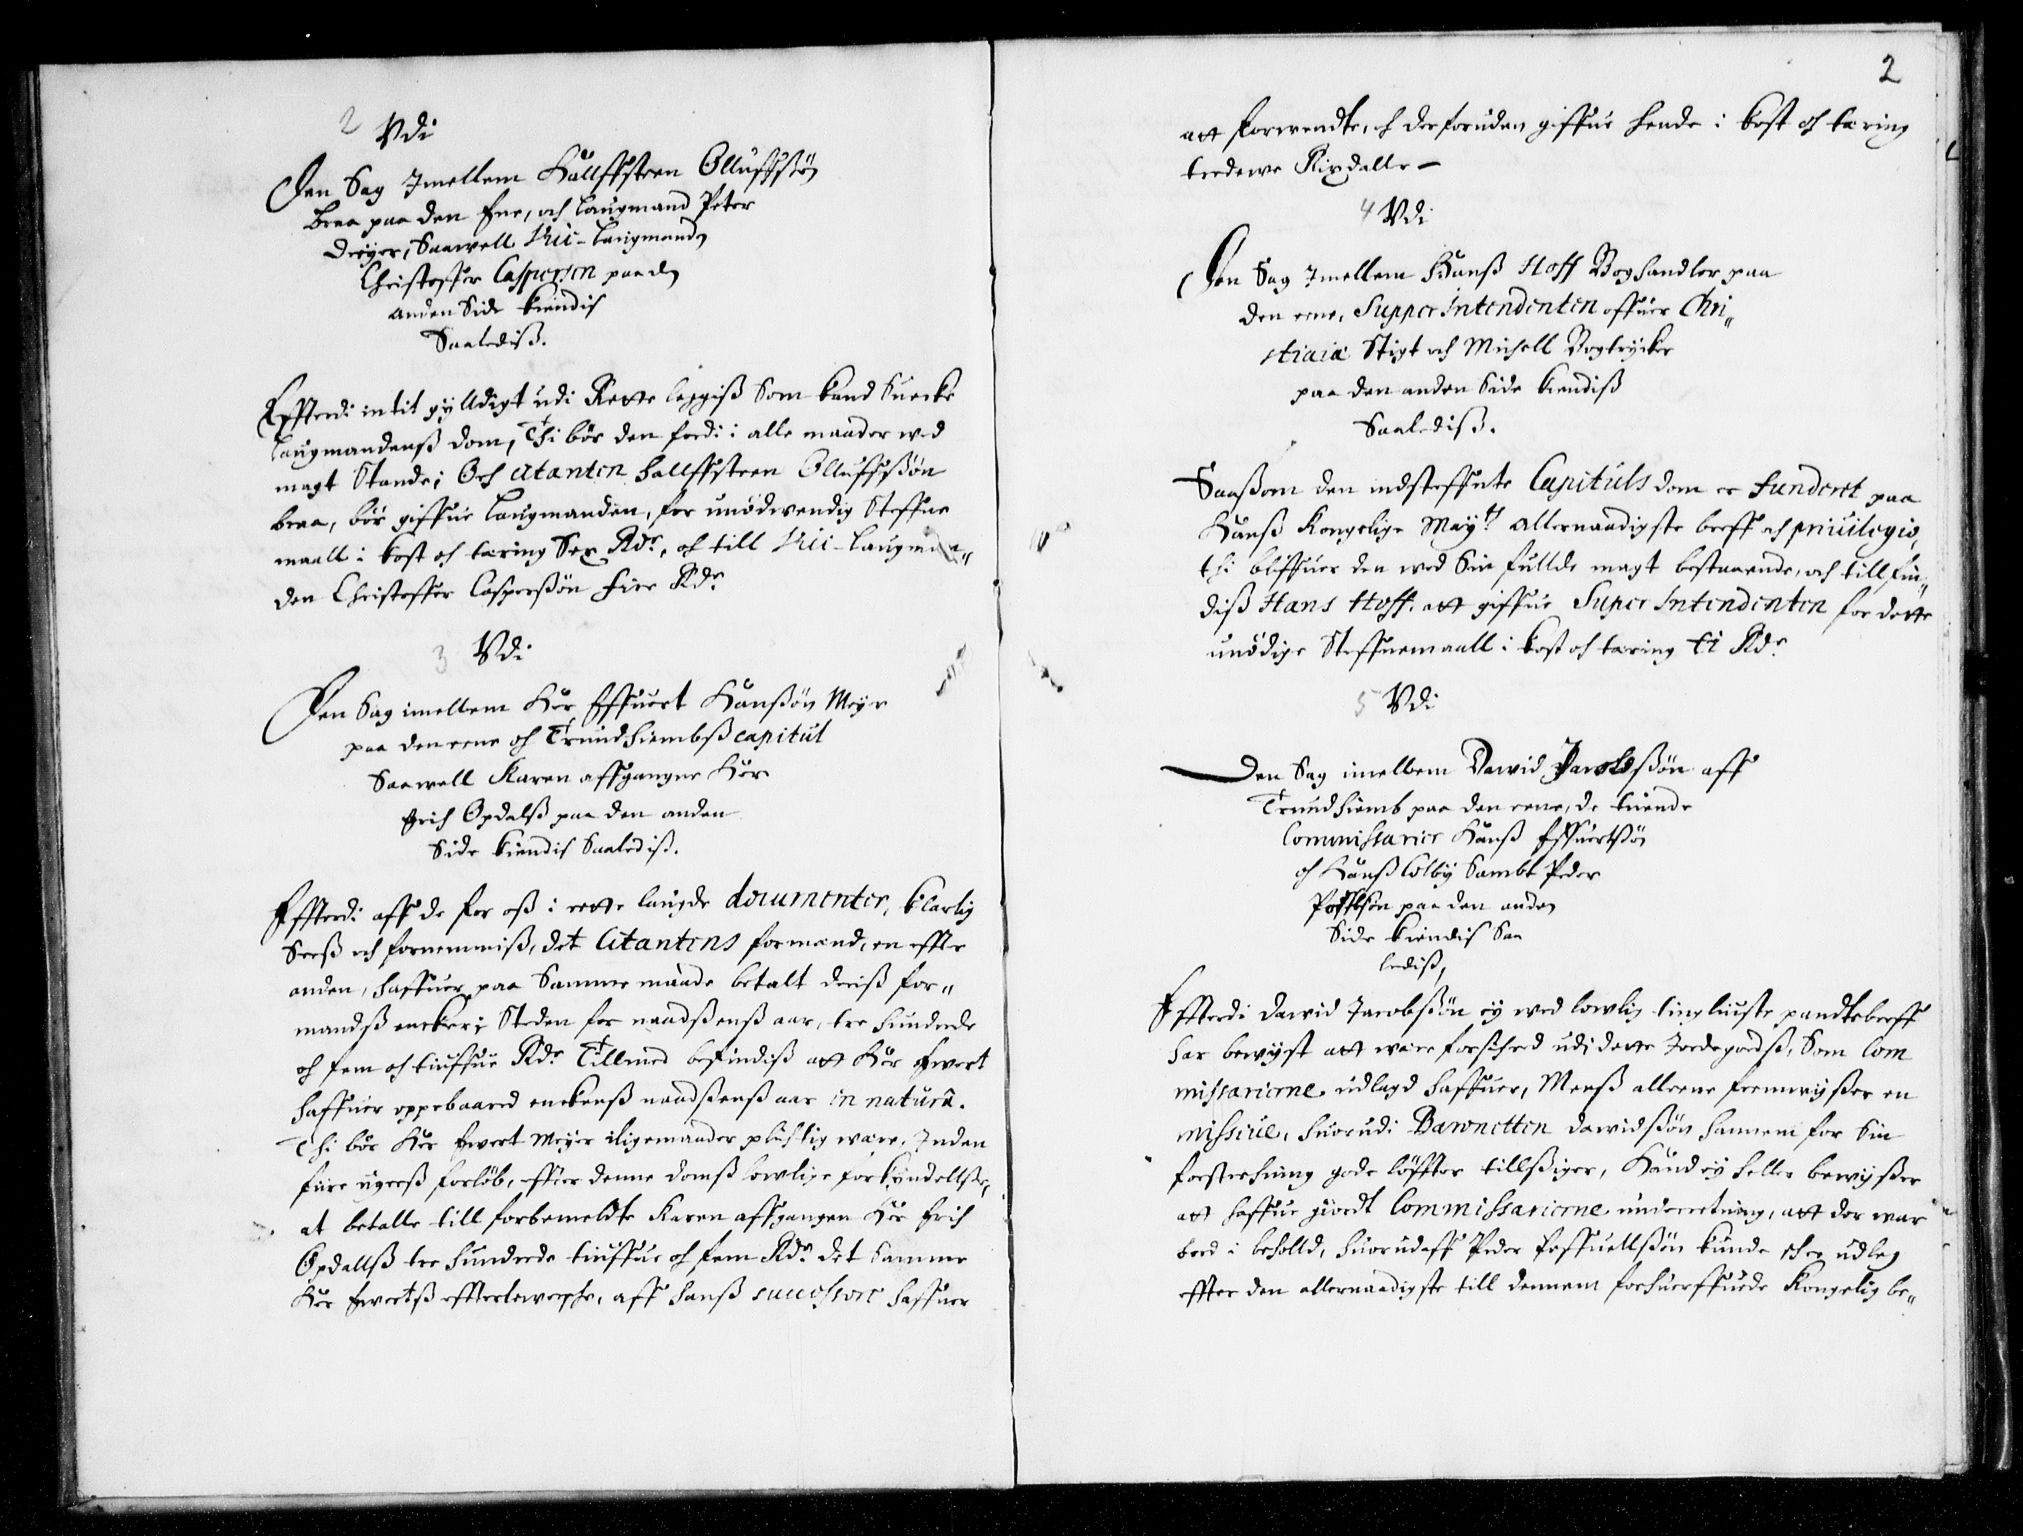 2 Vdi
Den Sag Imellem Hallffsteen Olluffssøn
braa paa den Ene, och laugmand Peter
Dreyer, Saawell Vici-laugmand
Christoffer Caspersen paa dn
anden Side kiendis
Saaledisß.
Effterdi intit gylldigt udi Rette leggiß Som kand Suecke
laugmandenß dom, Thi bør den fordi i alle maader wed
magt Stande; Och Citanten hallffsteen Olluffssøn
braa, bør giffue laugmanden, for unødwendig Steffne
maall i kost och tæring Sex Rdr, och till Vici-laugman„
den Christoffer Casperssøn fire Rdr
3 Vdi
Den Sag imellem Her Effuert Hanssøn Meyer
paa den eene och Trundhiembß Capitul
Saawell Karen affgangne Her
Erich Opdalß paa den anden
Side kiendis Saalediß.
Effterdi aff de for oß i rette laugde documenter, klarlig
Seeß och fornemmiß, det Citantens formænd, en effter
anden, haffuer paa Samme maade betalt deriß for„
mandß encker i Steden for naadßenß aar, tre hundrede
och fem och tiuffue Rdr Tillmed befindiß att Her Ewert
haffuer oppebaared enckenß naadßenß aar in natura.
Thi bør Her Ewert Meyer iligemaader plichtig wære, Inden
fiire ugerß forløb, effter denne domß lowlige forkyndellse,
at betalle till forbemeldte Karen affgangen Her Erich
Opdallß tre hundrede tiuffue och fem Rdr det Samme
Her Ewertß effterlewersche, aff hanß successore haffuer
2
att forwendte, och desforuden giffue hende i kost och tæring
tredewe Rixdaller –
4 Vdi
Den Sag Imellem Hanß Hoff Boghandler paa
den eene, Supper Intendenten offuer Chri„
stiania Stigt och Michell Bogtrycker
paa den anden Side kiendiß
Saalediß.
Saaßom den indsteffnte Capituls dom er funderet paa
Hanß Kongelige Mayts allernaadigste breff och privilegio,
thi bliffuer den wed Sin fullde magt bestaaende, och tillfin„
diß Hans Hoff. att giffue Super Intendenten for dette
unødige Steffnemaall i kost och tæring ti Rdr
5 Vdi
Den Sag imellem Dawid Jacobssøn aff
Trundhiemb paa den eene, de tuende
Commissarier Hanß Effuertsøn
och Hanß Colby Sambt Peder
paa den anden
Side kiendis Saa
lediß,
Effterdi Dawid Jacobssøn ey wed lowlig tingliuste pandtebreff
har bewyst att wære forsichred udi dette Jordegodß, Som Com
missarierne udlagd haffuer, Menß alleene fremwyßer en
missive, huorudi Baronetten Dawidssøn hannem for Sin
forstrechning gode løffter tillßiger, Kand ey heller bewyßer
att haffue giordt Commissarierne underretning, att der war
bord i beholld, huorudaff Peder kunde schee udleg
effter den allernaadigste till dennem forhuerffuede Kongelig be„